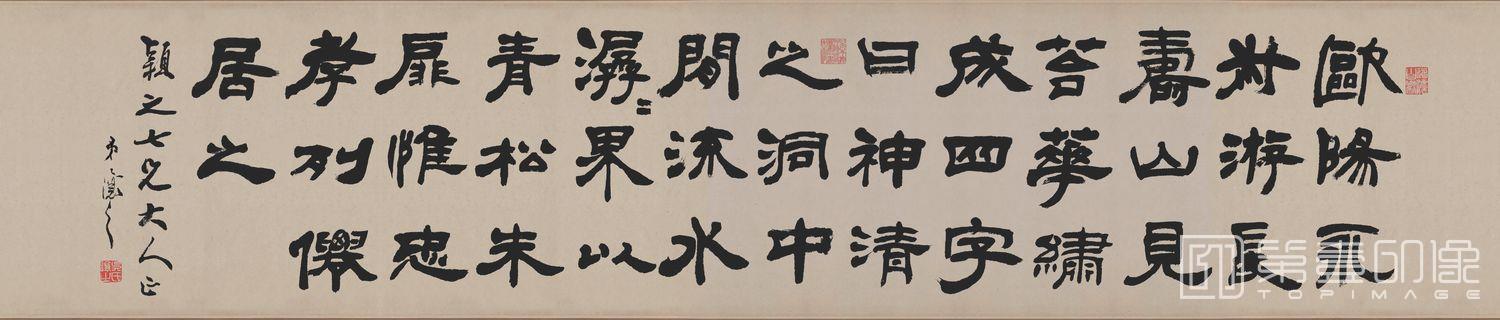 歐陽永
叔游長
壽山見
苔華繡
成四字
曰神清
之洞中
間流水
潺〻果以
青松朱
扉惟忠
孝列僊
居之
穎之七兄大人正
弟
TOPIMAGE